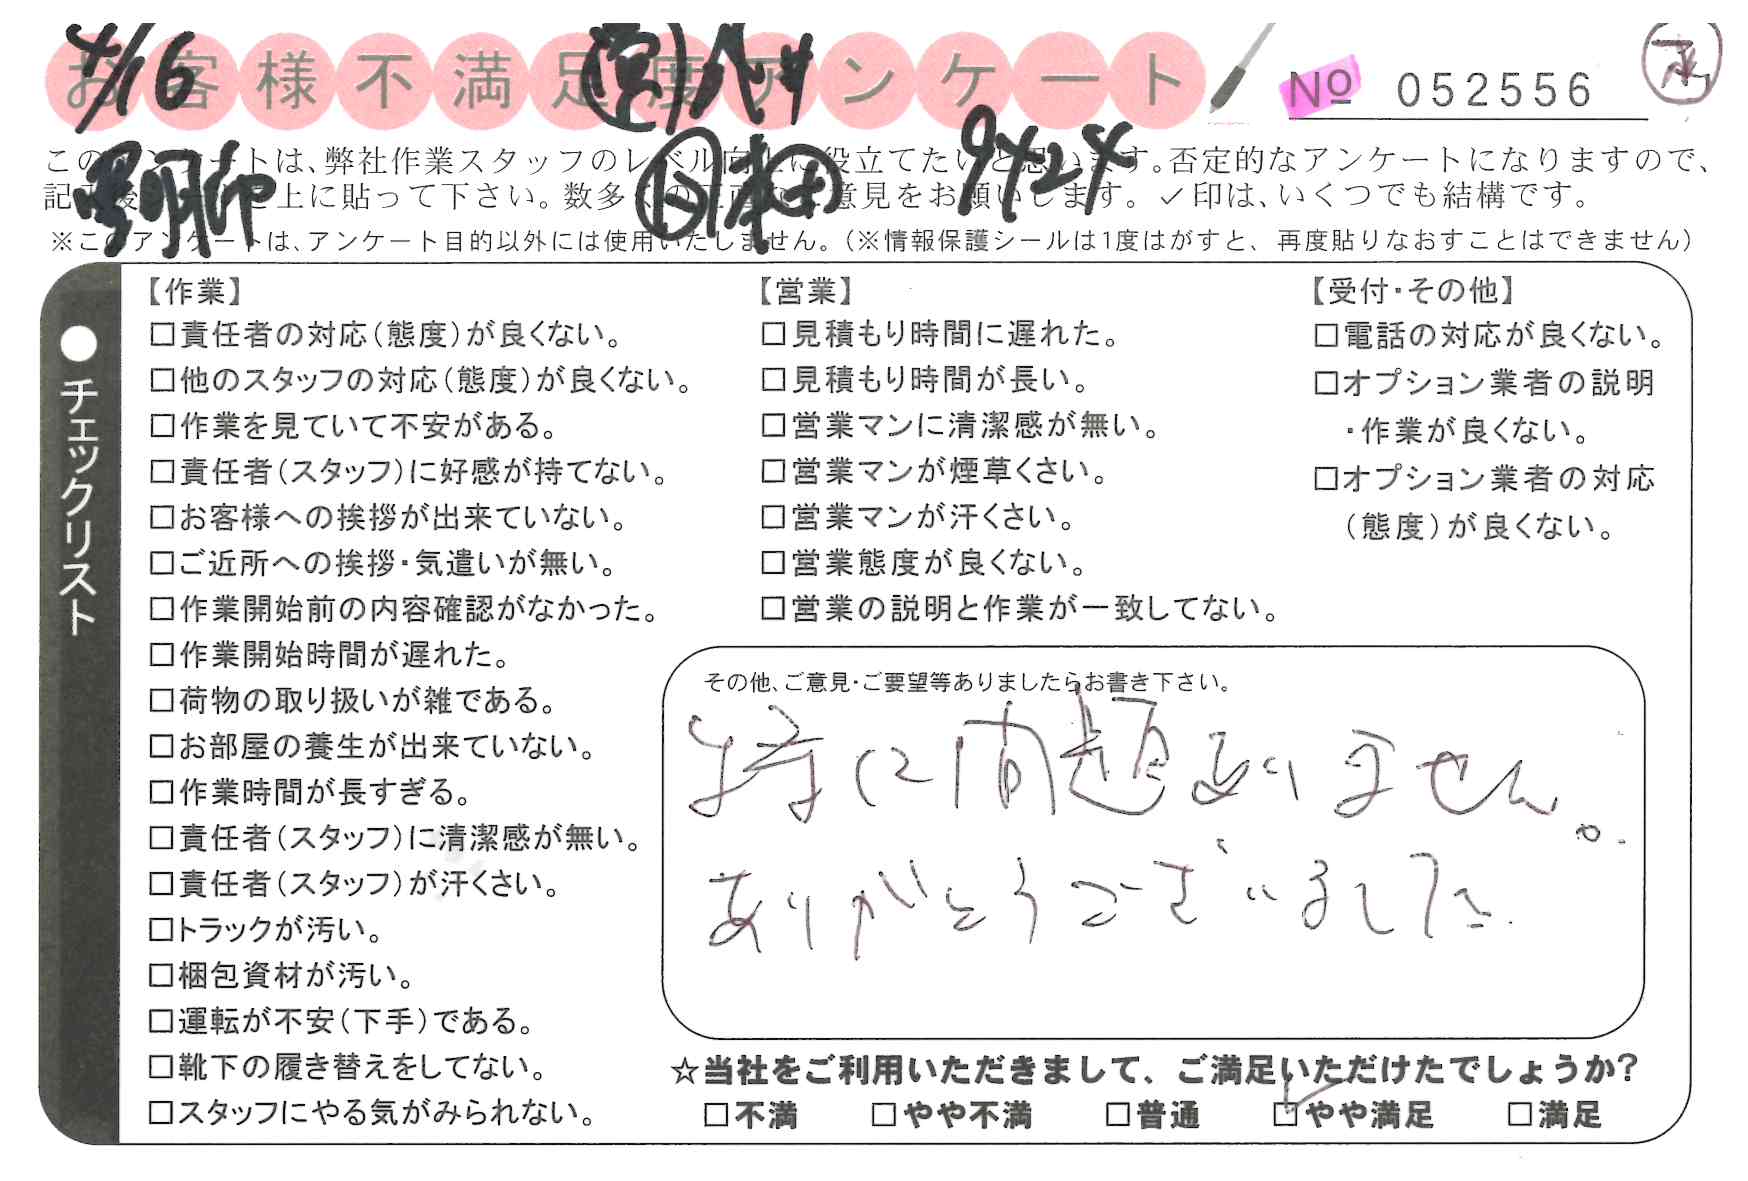 お客様不満足度アンケート
4/16
No 052556
このアンケートは、弊社作業スタッフのレベル向上に役立てたいと思います。否定的なアンケートになりますので、
9424
※このアンケートは、アンケート目的以外には使用いたしません。（※情報保護シールは1度はがすと、再度貼りなおすことはできません）
●チェックリスト
【作業】
□責任者の対応（態度）が良くない。
□他のスタッフの対応（態度）が良くない。
□作業を見ていて不安がある。
□責任者（スタッフ）に好感が持てない。
□お客様への挨拶が出来ていない。
□ご近所への挨拶・気遣いが無い。
□作業開始前の内容確認がなかった。
□作業開始時間が遅れた。
□荷物の取り扱いが雑である。
□お部屋の養生が出来ていない。
□作業時間が長すぎる。
□責任者（スタッフ）に清潔感が無い。
□責任者（スタッフ）が汗くさい。
□トラックが汚い。
□梱包資材が汚い。
□運転が不安（下手）である。
□靴下の履き替えをしてない。
□スタッフにやる気がみられない。
【営業】
□見積もり時間に遅れた。
□見積もり時間が長い。
□営業マンに清潔感が無い。
□営業マンが煙草くさい。
□営業マンが汗くさい。
□営業態度が良くない。
□営業の説明と作業が一致してない。
【受付・その他】
□電話の対応が良くない。
□オプション業者の説明
・作業が良くない。
□オプション業者の対応
（態度）が良くない。
その他、ご意見・ご要望等ありましたらお書き下さい。
特に問題ありません。
ありがとうございました.
☆当社をご利用いただきまして、ご満足いただけたでしょうか?
□不満 □やや不満 □普通 ☑やや満足 □満足